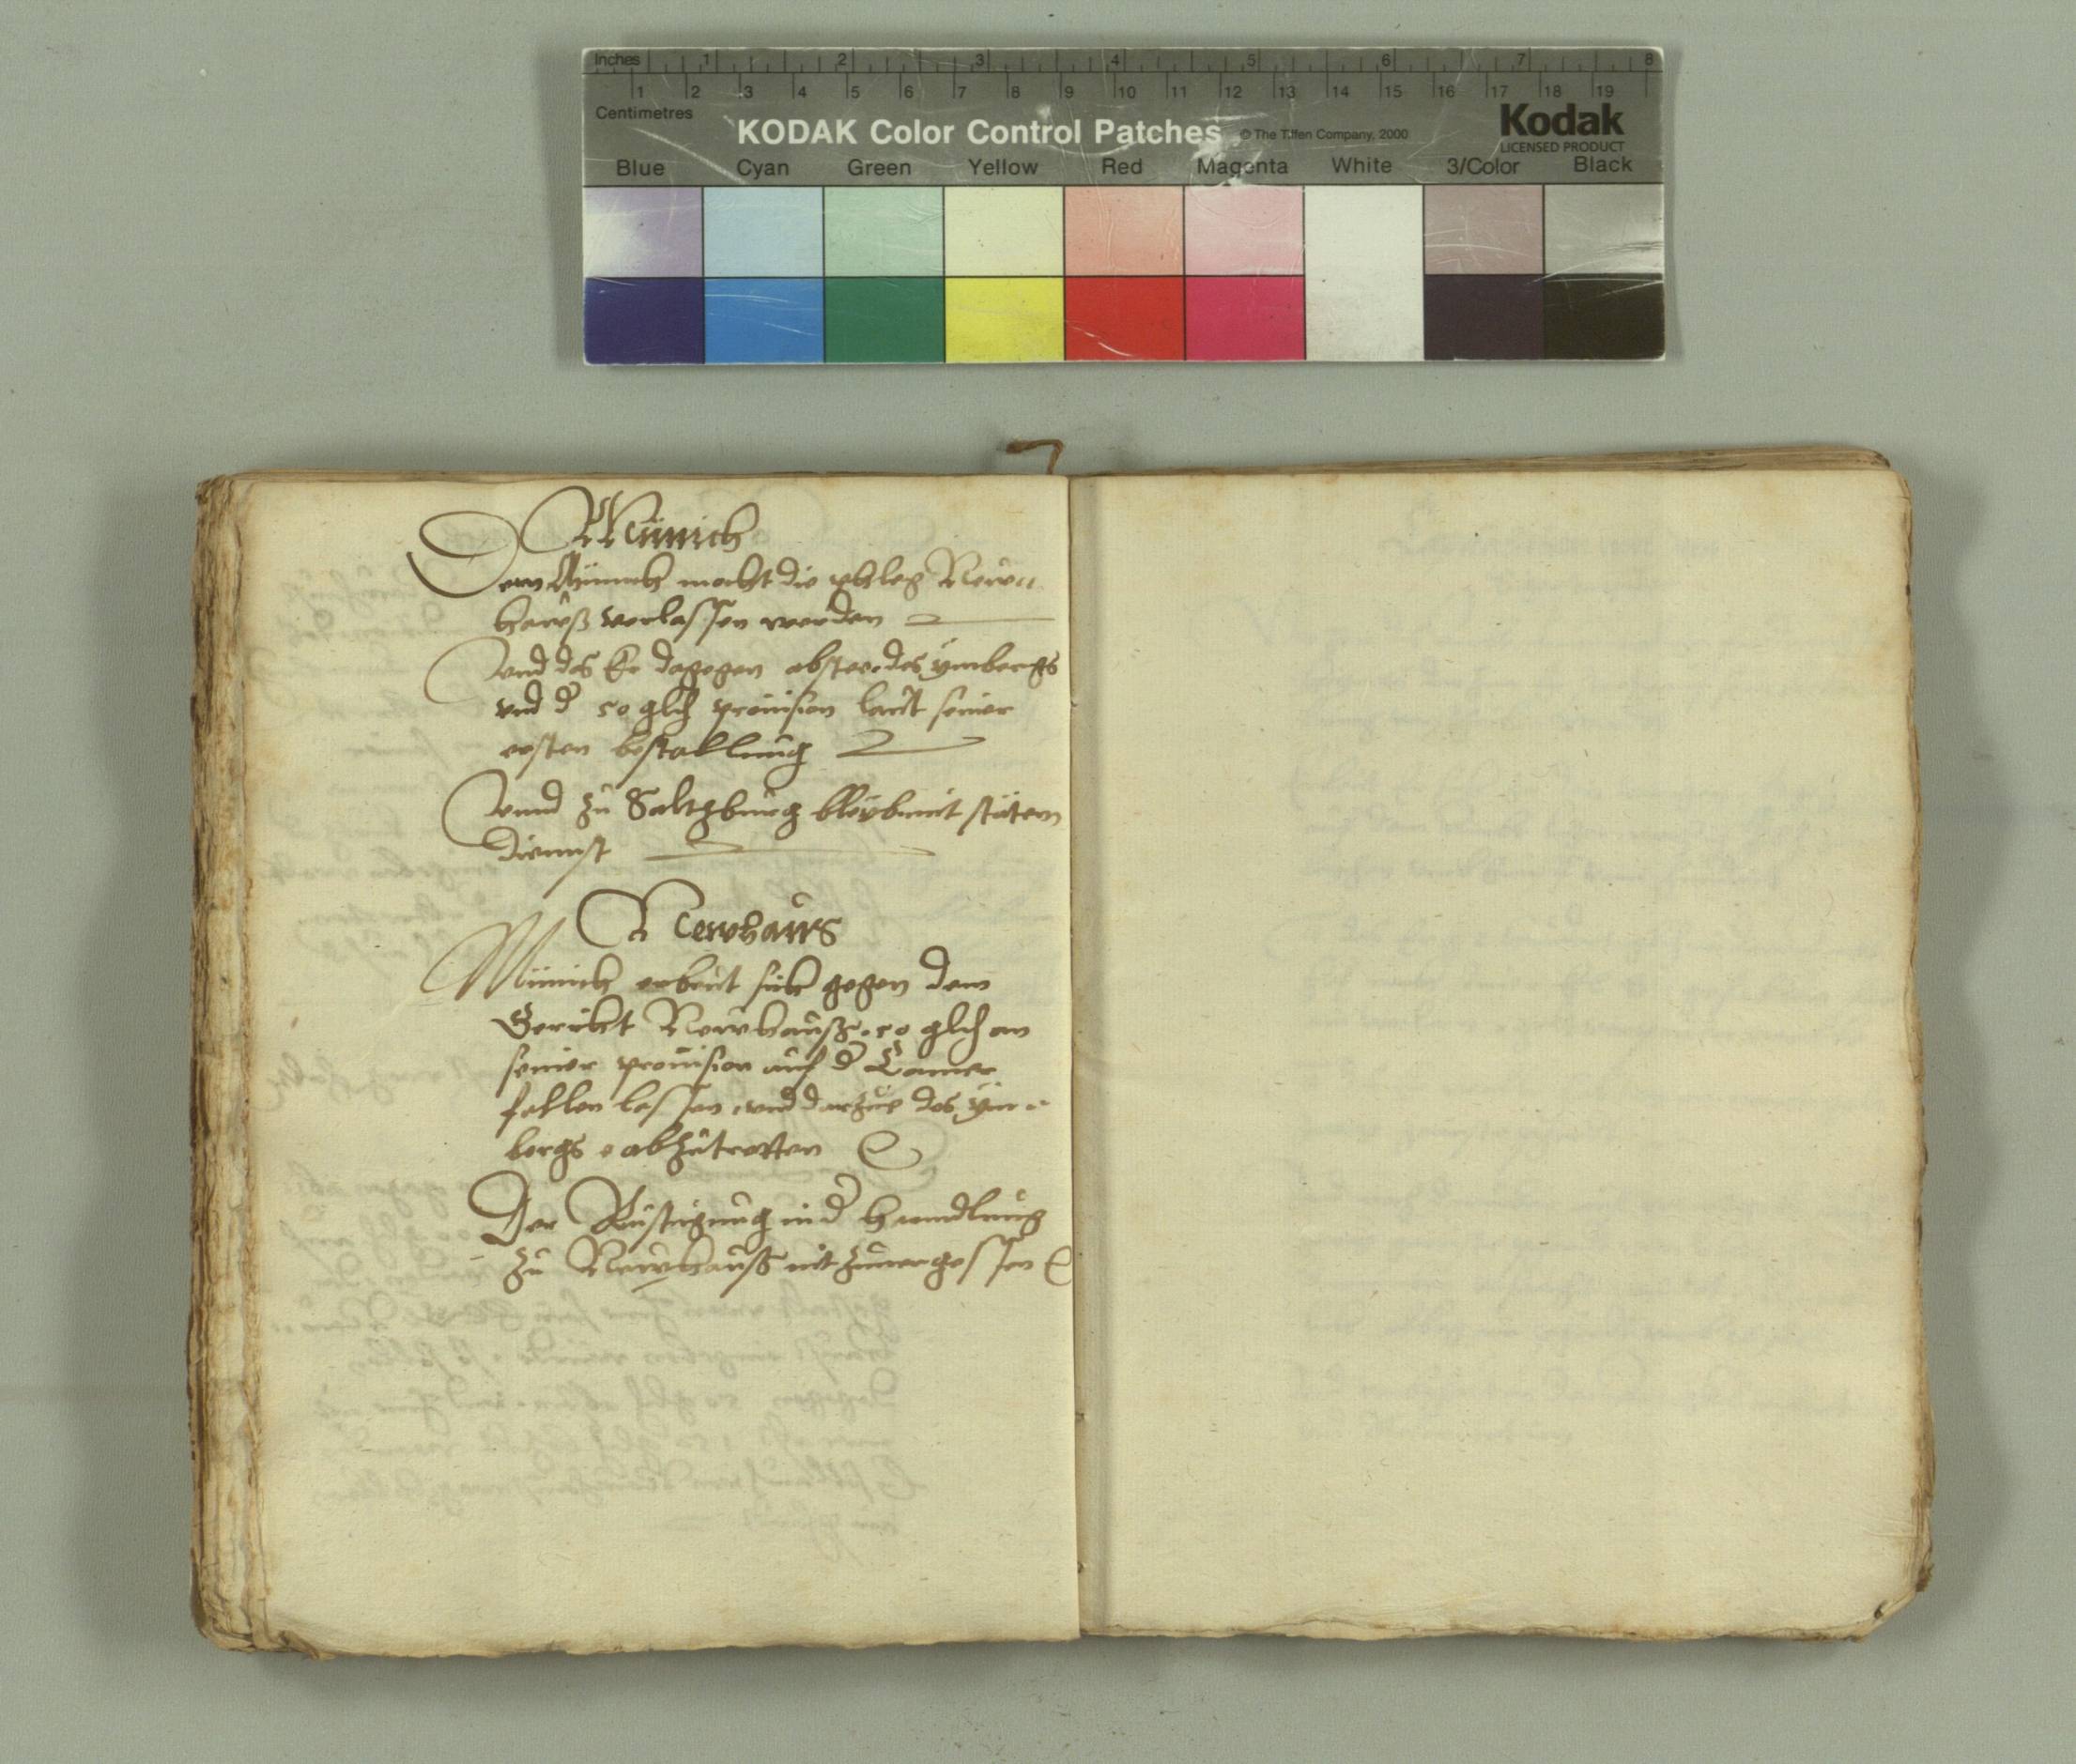 Inches 1 2 3 4 5 6 7 8
1 2 3 4 5 6 7 8 9 10 11 12 13 14 15 16 17 18 19
Centimetres
KODAK Color Control Patches © The Tiffen Company, 2000
Kodak
LICENSED PRODUCT
Blue Cyan Green Yellow Red Magenta White 3/Color Black
Münich
Dem Münich möcht die phleg Newen
hawß verlassen werden
Vnd das Er dagegen abstee des ymbergs
vnd d 50 gld prouision laut seiner
ersten bestallung
Vnnd zu Saltzburg bleyb mit stätem
diennst
Newhaws
Münich erbeut sich gegen dem
Gericht Newhauß 50 gld an
seiner prouision auf d Camer
fallen lassen vnd darzue des ym
bergs abzutretten
Der in d hanndlung
zu Newhauß nit zuuergessen